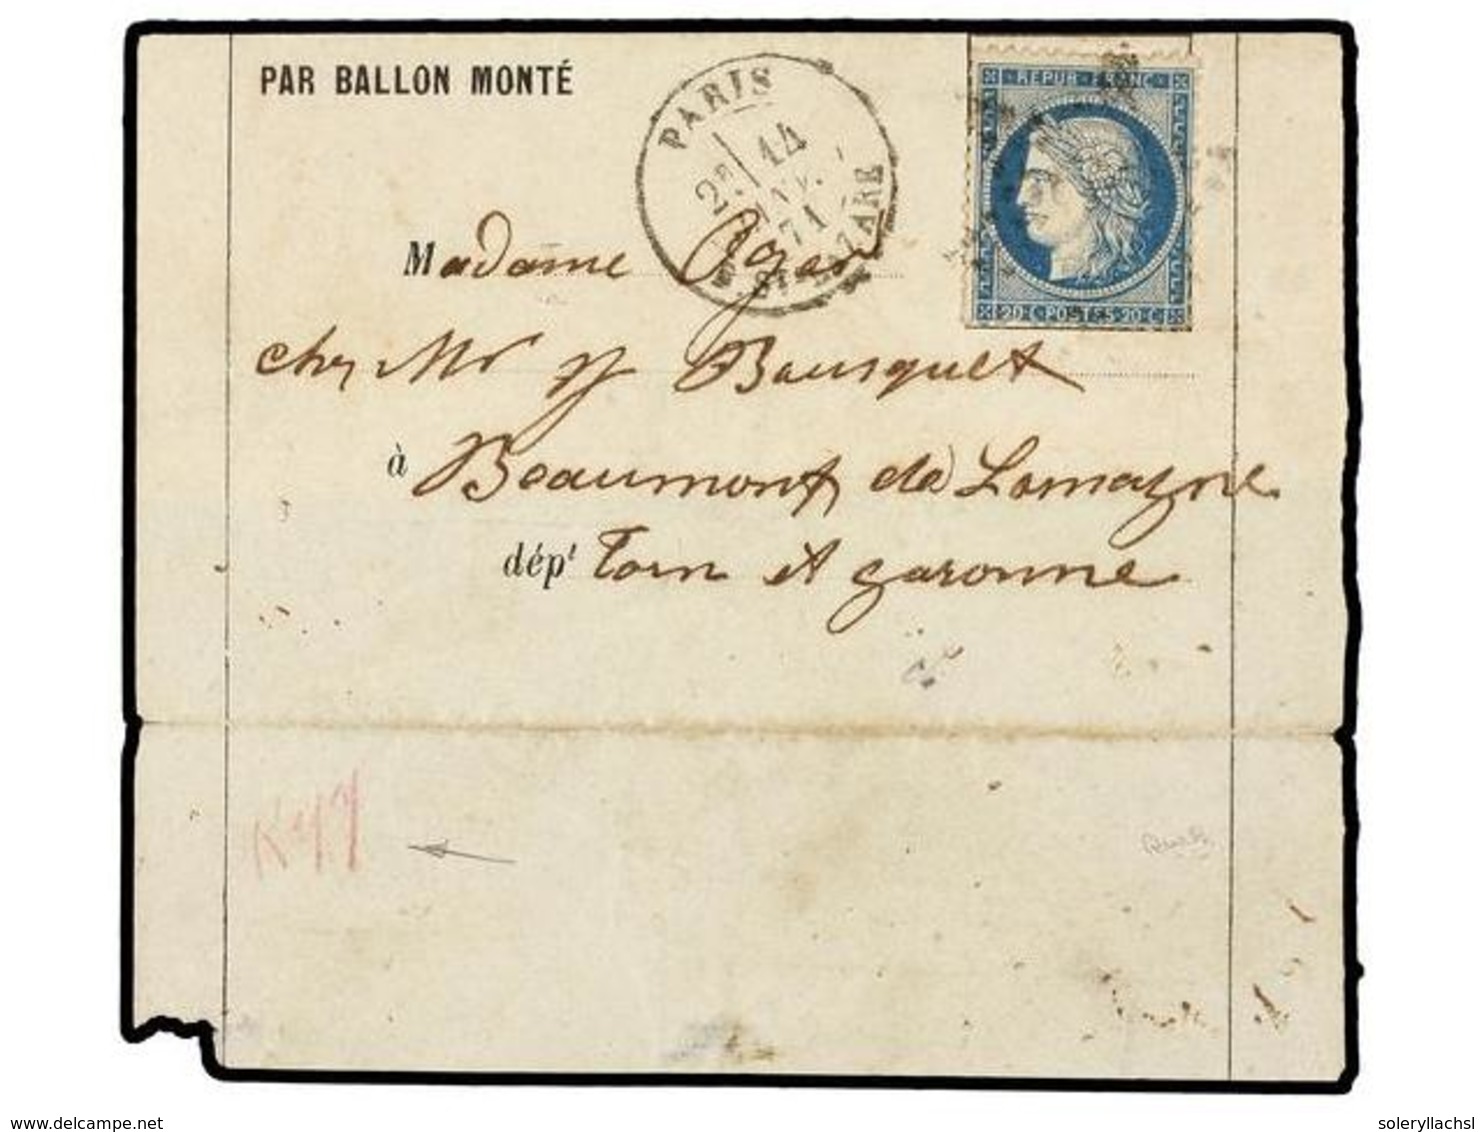 PAR BALLON MONTÉ
PARIS
2E 14
JANV.
71
R. ST-LAZARE
REPUB FRANC
20 C POSTES 20 C
Madame Ogier
chez Mr Bousquet
à Beaumont de Lomagne
dépt Tarn et garonne
www.delcampe.net
soleryllachsl